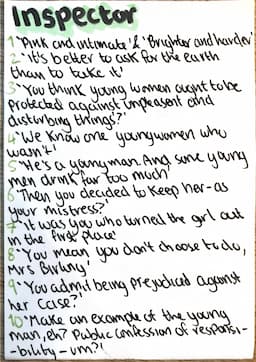 Inspector
1 'Pink and intimate' & 'Brighter and harder'
2 'it's better to ask for the earth
than to take it'
3 'You think young women ought to be
protected against unpleasent and
disturbing things?'
4 'We know one young women who
wasn't'
5 'He's a young man. And some young
men drink far too much'
6 'Then you decided to keep her - as
your mistress?'
7 'It was you who turned the girl out
in the first place'
8 'You mean you don't choose to do,
Mrs Birling'
9 'You admit being prejudiced against
her case?'
10 'Make an example of the young
man, eh? Public confession of responsi-
-bility - um?'